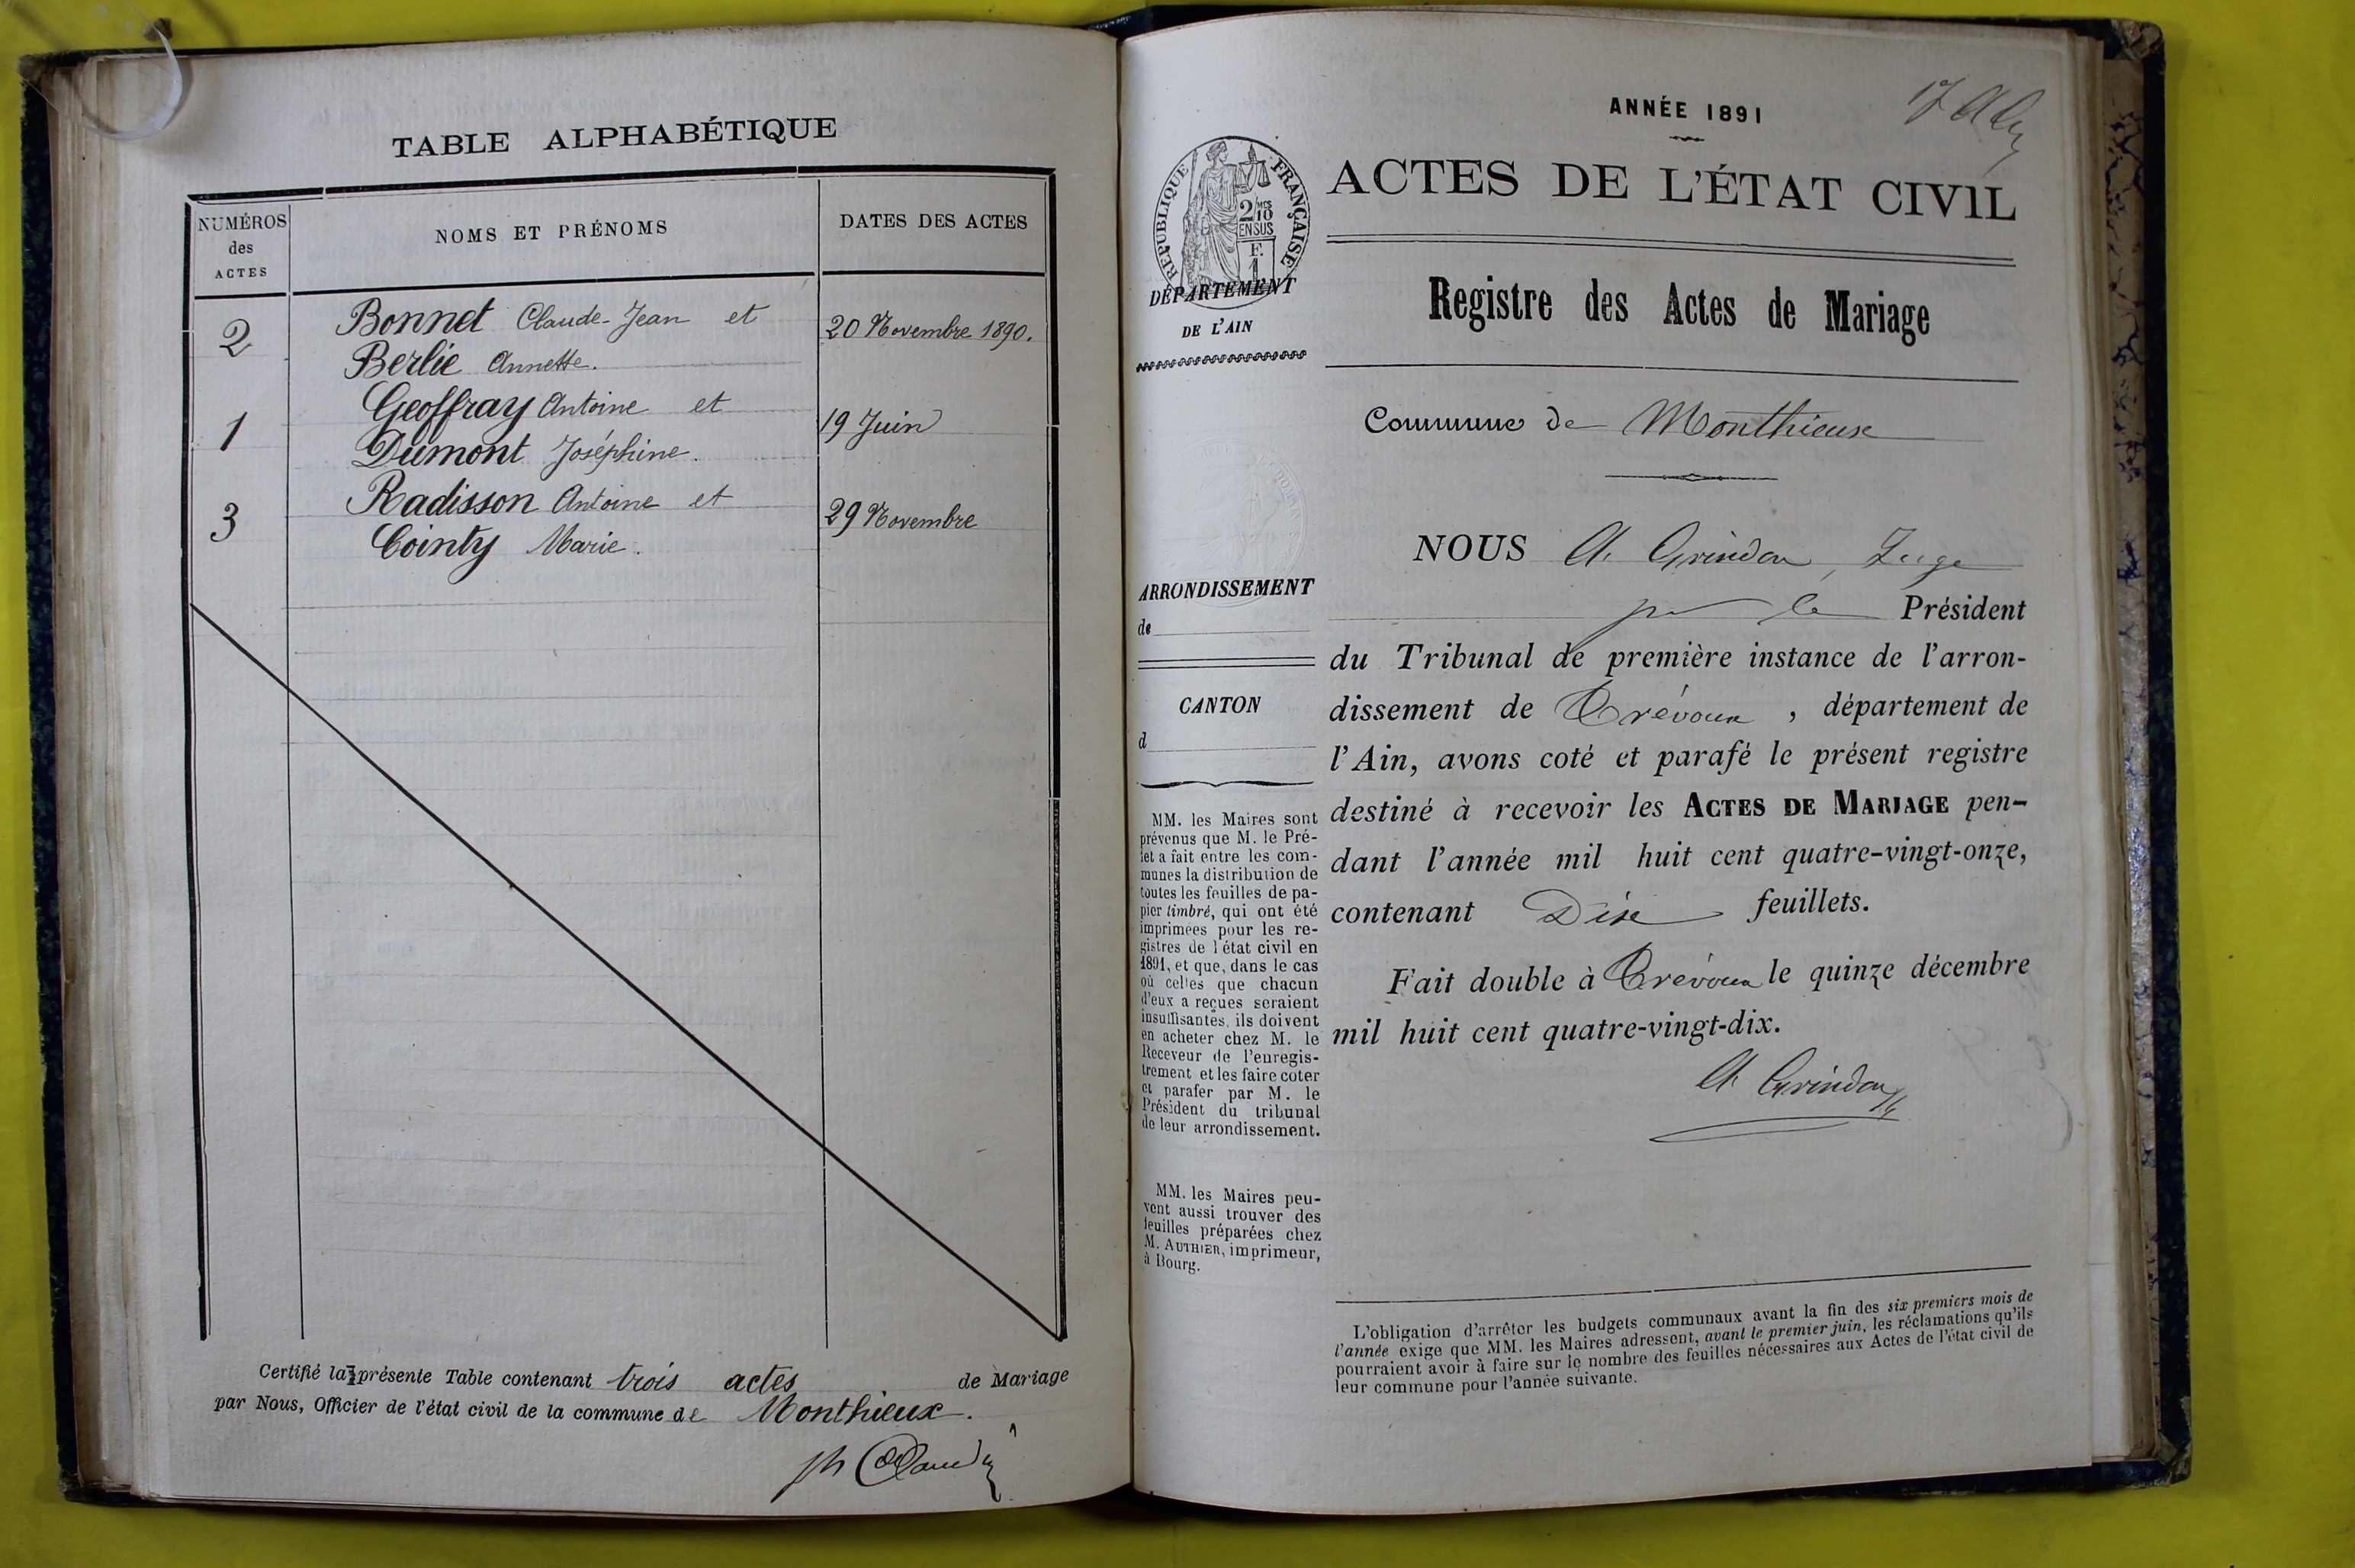 TABLE ALPHABÉTIQUE
NUMÉROS
des
ACTES
NOMS ET PRÉNOMS
DATES DES ACTES
2
Bonnet Claude-Jean et
Berlie Annette.
20 Novembre 1890.
1
Geoffray Antoine et
Dumont Joséphine.
19 Juin
3
Radisson Antoine et
Cointy Marie.
29 Novembre
Certifié la présente Table contenant trois actes de Mariage
par Nous, Officier de l'état civil de la commune de Monthieux.
ANNÉE 1891
RÉPUBLIQUE FRANÇAISE
2 MES
10
EN SUS
F.
1
DÉPARTEMENT
DE L'AIN
ACTES DE L'ÉTAT CIVIL
Registre des Actes de Mariage
Commune de Monthieux
ARRONDISSEMENT
de
CANTON
d
MM. les Maires sont
prévenus que M. le Pré-
fet a fait entre les com-
munes la distribution de
toutes les feuilles de pa-
pier timbré, qui ont été
imprimées pour les re-
gistres de l'état civil en
1891, et que, dans le cas
où celles que chacun
d'eux a reçues seraient
insuffisantes, ils doivent
en acheter chez M. le
Receveur de l'enregis-
trement et les faire coter
et parafer par M. le
Président du tribunal
de leur arrondissement.
MM. les Maires peu-
vent aussi trouver des
feuilles préparées chez
M. AUTHIER, imprimeur,
à Bourg.
NOUS A. Grindon, Juge
pr le Président
du Tribunal de première instance de l'arron-
dissement de Trévoux, département de
l'Ain, avons coté et parafé le présent registre
destiné à recevoir les ACTES DE MARIAGE pen-
dant l'année mil huit cent quatre-vingt-onze,
contenant Dix feuillets.
Fait double à Trévoux le quinze décembre
mil huit cent quatre-vingt-dix.
A Grindon
L'obligation d'arrêter les budgets communaux avant la fin des six premiers mois de
l'année exige que MM. les Maires adressent, avant le premier juin, les réclamations qu'ils
pourraient avoir à faire sur le nombre des feuilles nécessaires aux Actes de l'état civil de
leur commune pour l'année suivante.